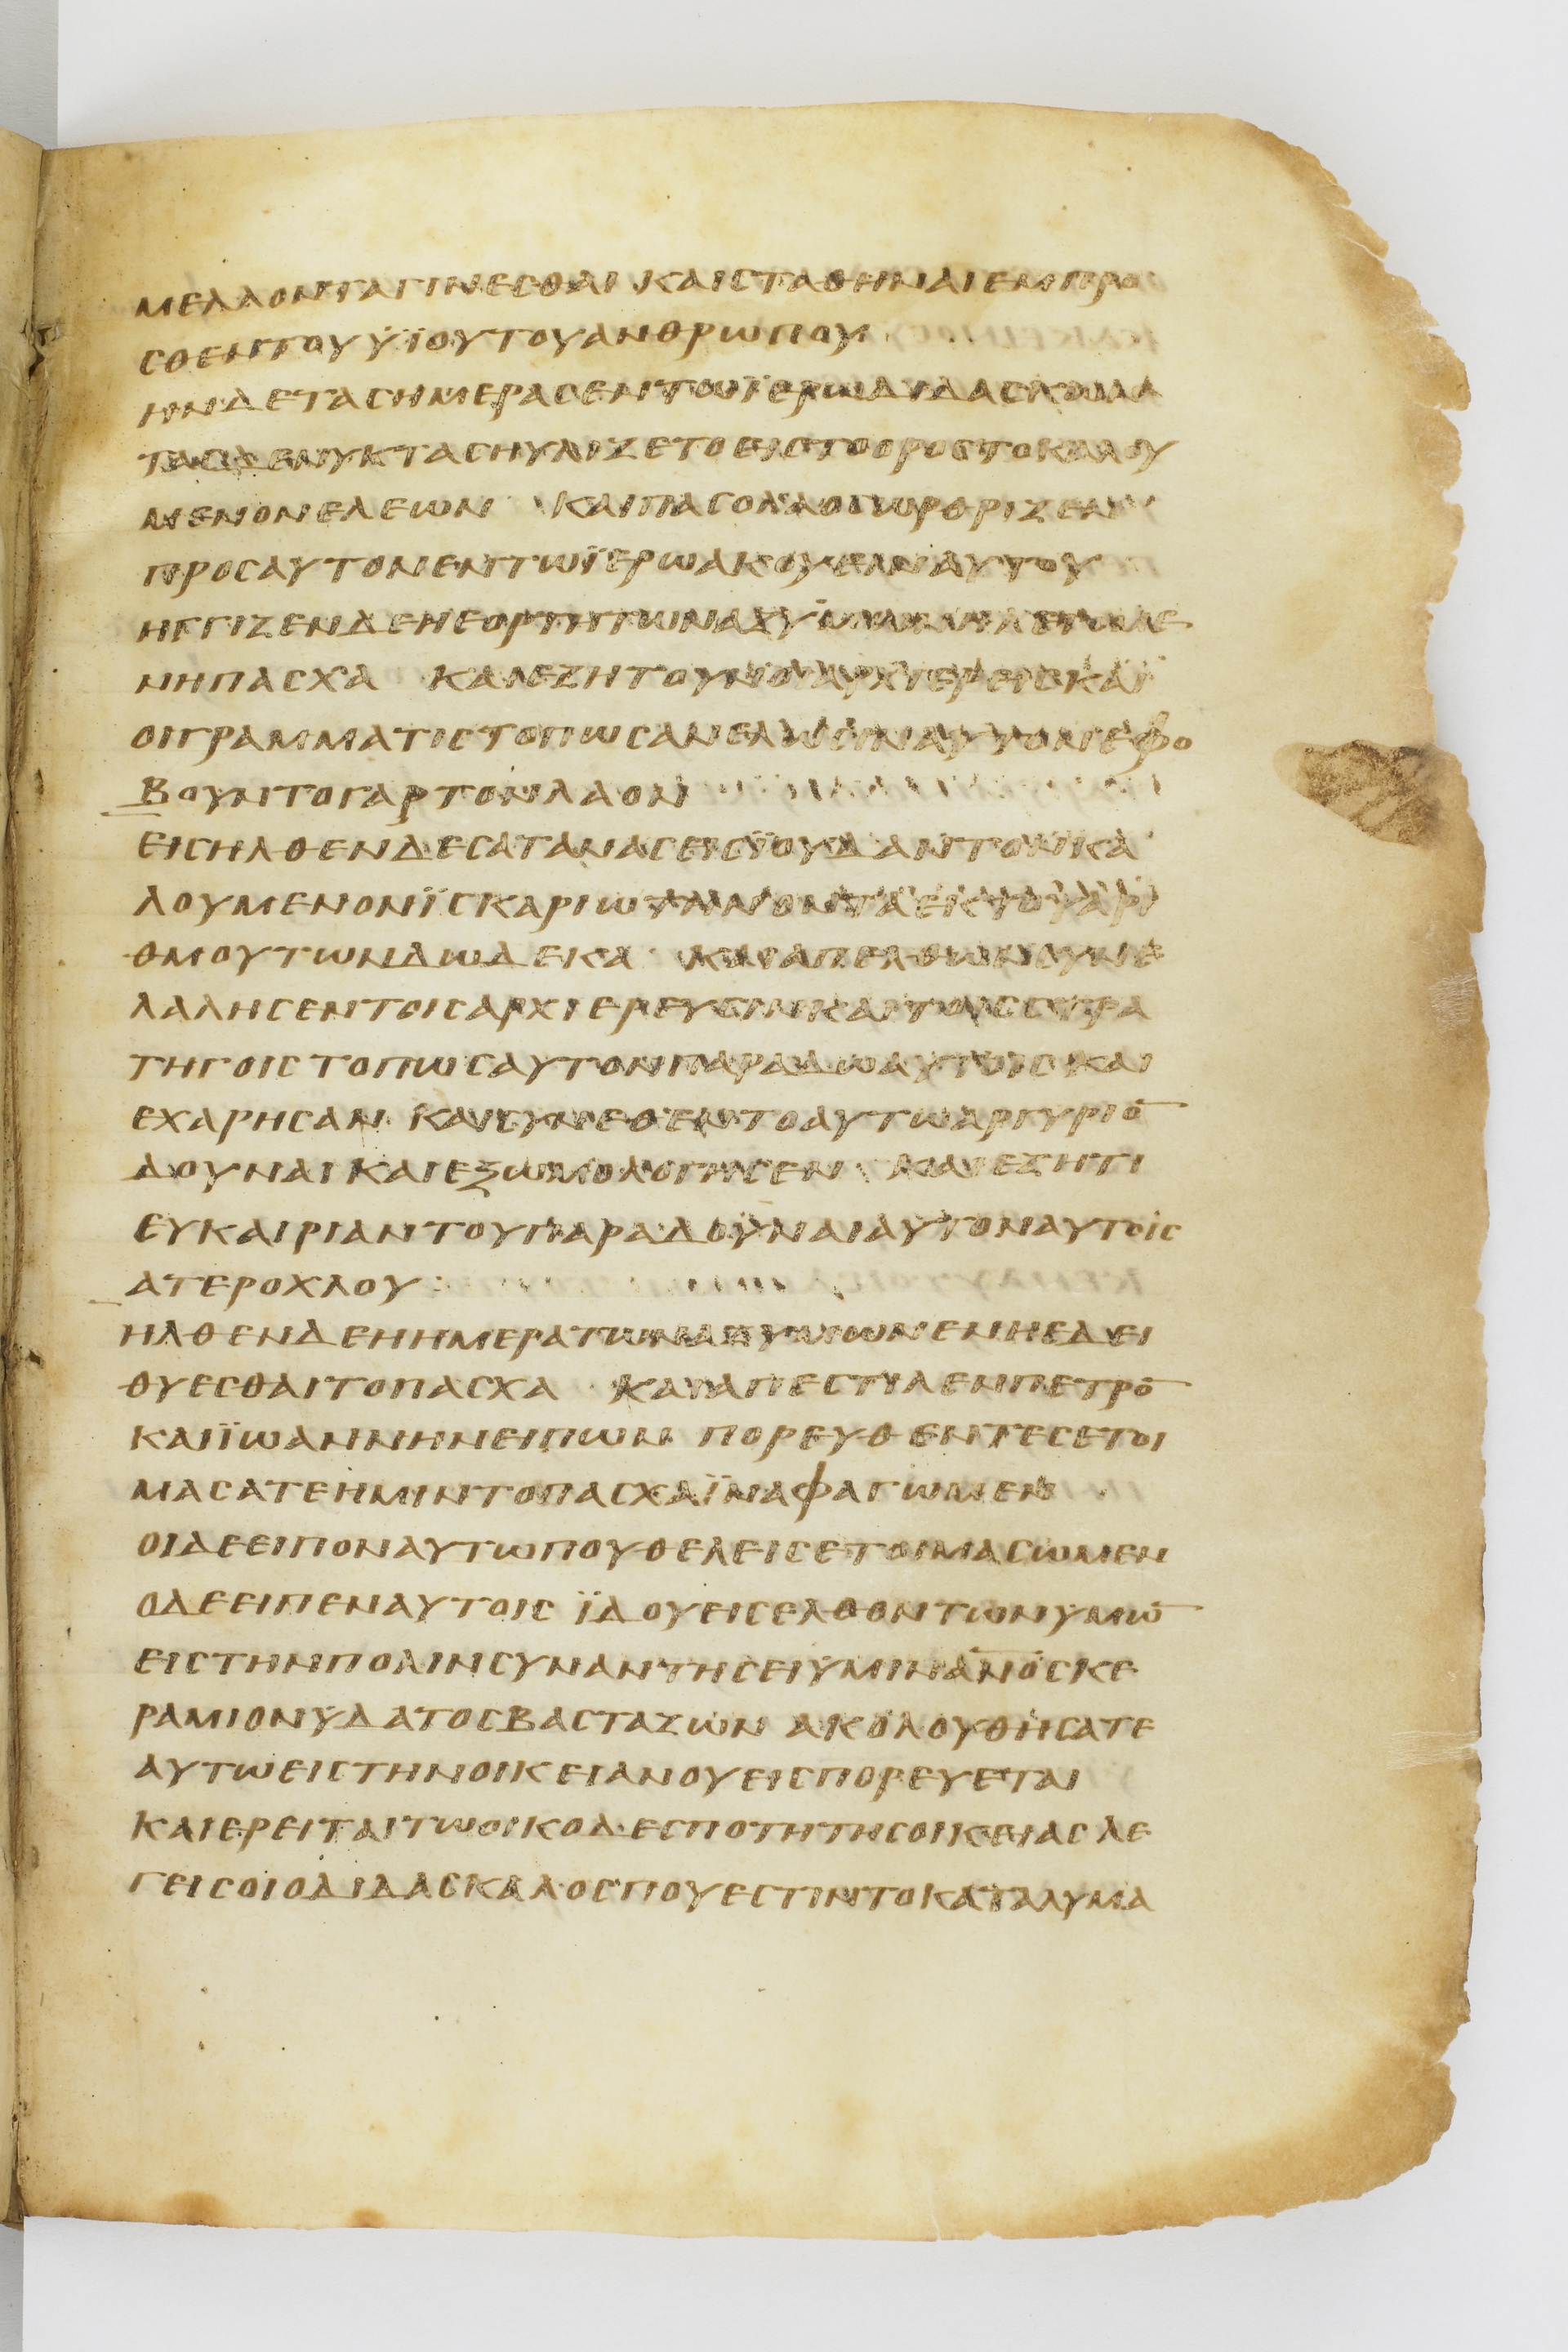 ΜΕΛΛΟΝΤΑΓΙΝΕΣΘΑΙ ΚΑΙΣΤΑΘΗΝΑΙΕΜΠΡΟ
ΣΘΕΝΤΟΥΫΙΟΥΤΟΥΑΝΘΡΩΠΟΥ
ΗΝΔΕΤΑΣΗΜΕΡΑΣΕΝΤΩΪΕΡΩΔΙΔΑΣΚΩΝ
ΤΑΣΔΕΝΥΚΤΑΣΗΥΛΙΖΕΤΟΕΙΣΤΟΟΡΟΣΤΟΚΑΛΟΥ
ΜΕΝΟΝΕΛΕΩΝ ΚΑΙΠΑΣΟΛΑΟΣΩΡΘΡΙΖΕΝ
ΠΡΟΣΑΥΤΟΝΕΝΤΩΪΕΡΩΑΚΟΥΕΙΝΑΥΤΟΥ
ΗΓΓΙΖΕΝΔΕΗΕΟΡΤΗΤΩΝΑΖΥΜΩΝΗΛΕΓΟΜΕ
ΝΗΠΑΣΧΑ ΚΑΙΕΖΗΤΟΥΝΟΙΑΡΧΙΕΡΕΙΣΚΑΙ
ΟΙΓΡΑΜΜΑΤΙΣΤΟΠΩΣΑΝΕΛΩΣΙΝΑΥΤΟΝΕΦΟ
ΒΟΥΝΤΟΓΑΡΤΟΝΛΑΟΝ
ΕΙΣΗΛΘΕΝΔΕΣΑΤΑΝΑΣΕΙΣΪΟΥΔΑΝΤΟΝΚΑ
ΛΟΥΜΕΝΟΝΪΣΚΑΡΙΩΤΗΝΟΝΤΑΕΚΤΟΥΑΡΙ
ΘΜΟΥΤΩΝΔΩΔΕΚΑ ΚΑΙΑΠΕΛΘΩΝΣΥΝΕ
ΛΑΛΗΣΕΝΤΟΙΣΑΡΧΙΕΡΕΥΣΙΝΚΑΙΤΟΙΣΣΤΡΑ
ΤΗΓΟΙΣΤΟΠΩΣΑΥΤΟΝΠΑΡΑΔΩΑΥΤΟΙΣΚΑΙ
ΕΧΑΡΗΣΑΝ ΚΑΙΣΥΝΕΘΕΝΤΟΑΥΤΩΑΡΓΥΡΙΟ̅
ΔΟΥΝΑΙΚΑΙΕΞΩΜΟΛΟΓΗΣΕΝ ΚΑΙΕΖΗΤΙ
ΕΥΚΑΙΡΙΑΝΤΟΥΠΑΡΑΔΟΥΝΑΙΑΥΤΟΝΑΥΤΟΙΣ
ΑΤΕΡΟΧΛΟΥ:
ΗΛΘΕΝΔΕΗΗΜΕΡΑΤΩΝΑΖΥΜΩΝΕΝΗΕΔΕΙ
ΘΥΕΣΘΑΙΤΟΠΑΣΧΑ ΚΑΙΑΠΕΣΤΙΛΕΝΠΕΤΡΟ̅
ΚΑΙΪΩΑΝΝΗΝΕΙΠΩΝ ΠΟΡΕΥΘΕΝΤΕΣΕΤΟΙ
ΜΑΣΑΤΕΗΜΙΝΤΟΠΑΣΧΑΪΝΑΦΑΓΩΜΕΝ
ΟΙΔΕΕΙΠΟΝΑΥΤΩΠΟΥΘΕΛΕΙΣΕΤΟΙΜΑΣΩΜΕΝ
ΟΔΕΕΙΠΕΝΑΥΤΟΙΣ ΪΔΟΥΕΙΣΕΛΘΟΝΤΩΝΥΜΩ̅
ΕΙΣΤΗΝΠΟΛΙΝΣΥΝΑΝΤΗΣΕΙΫΜΙΝΑ̅Ν̅Ο̅Σ̅ΚΕ
ΡΑΜΙΟΝΥΔΑΤΟΣΒΑΣΤΑΖΩΝ ΑΚΟΛΟΥΘΗΣΑΤΕ
ΑΥΤΩΕΙΣΤΗΝΟΙΚΕΙΑΝΟΥΕΙΣΠΟΡΕΥΕΤΑΙ
ΚΑΙΕΡΕΙΤΑΙΤΩΟΙΚΟΔΕΣΠΟΤΗΤΗΣΟΙΚΕΙΑΣΛΕ
ΓΕΙΣΟΙΟΔΙΔΑΣΚΑΛΟΣΠΟΥΕΣΤΙΝΤΟΚΑΤΑΛΥΜΑ